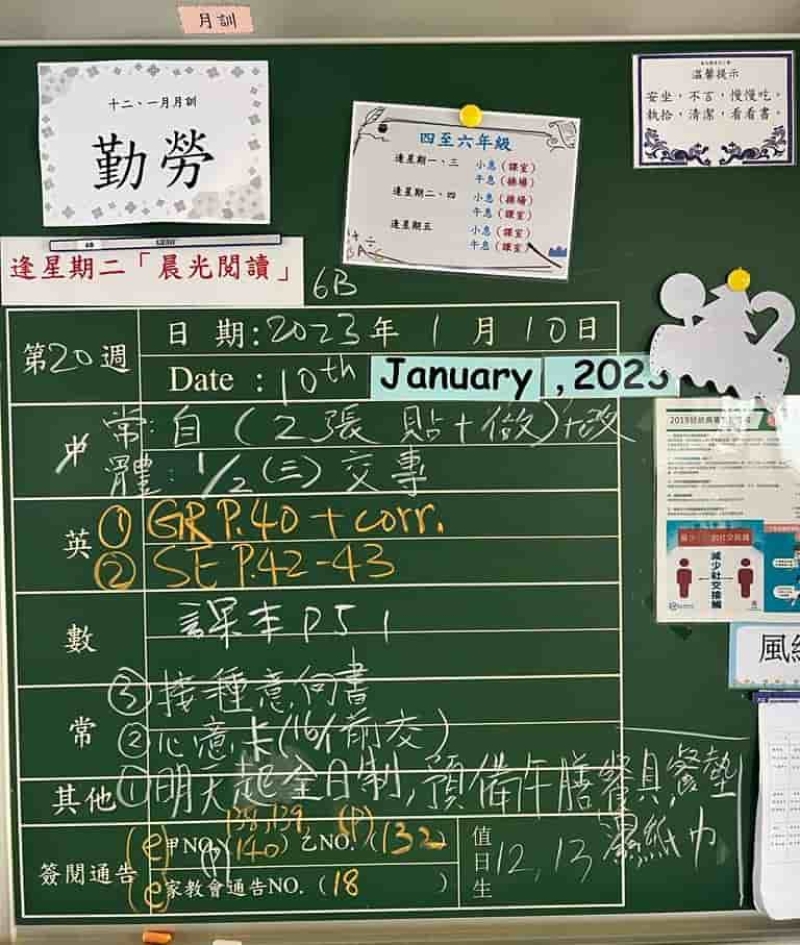 月訓
十二、一月月訓
勤勞
四至六年級
逢星期一、三 小息（課室）
午息（操場）
逢星期二、四 小息（操場）
午息（課室）
逢星期五 小息（課室）
午息（課室）
溫馨提示
安坐，不言，慢慢吃。
執拾，清潔，看看書。
逢星期二「晨光閱讀」
6B
第20週
日 期：2023年 1 月 10日
Date : 10th January, 2023
中 常：自（2張 貼+做）+改
體：1/2（三）交專
英 ① GR P.40 + corr.
② SE P.42-43
數 課本 P51
常 ③接種意向書
②心意卡（16/1前交）
其他 ①明天起全日制，預備午膳餐具，餐墊
濕紙巾
簽閱通告
(e) 甲NO. (138,139, 140) 乙NO. (132)
(P)
(e) 家教會通告NO.（18 ）
值日生 12, 13
減少社交接觸
風紀